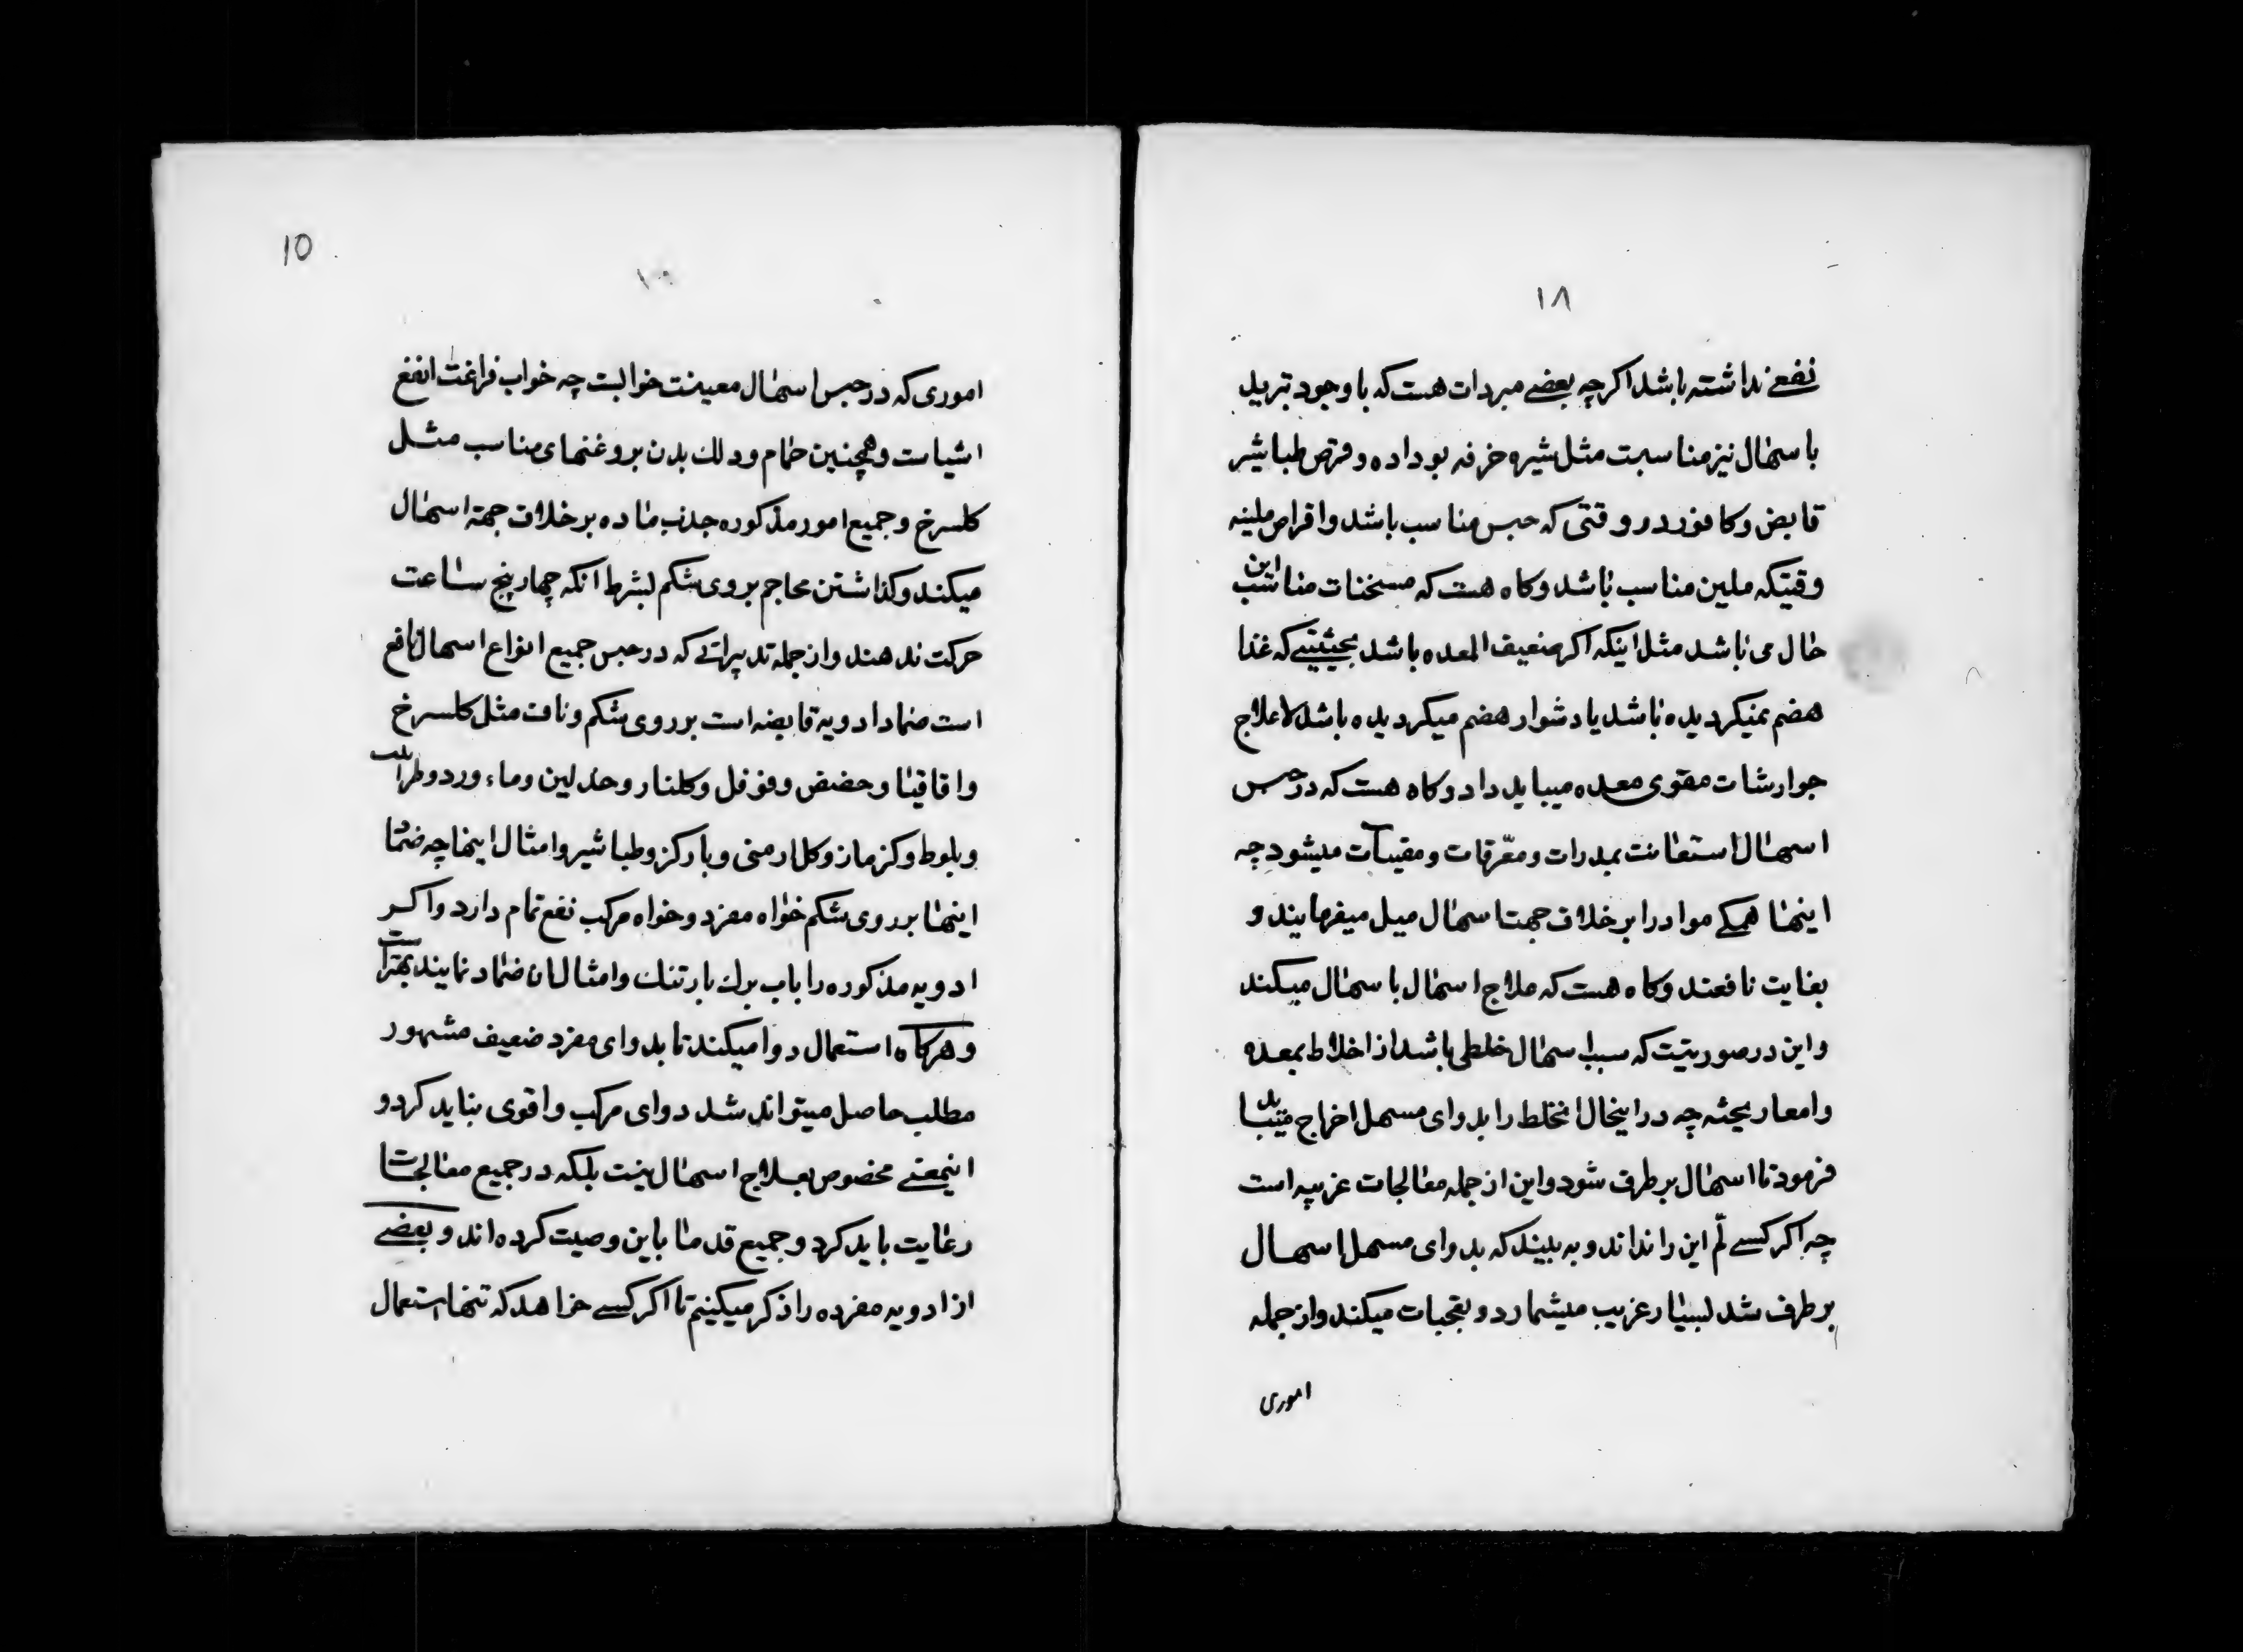 ۱۸
نفعی نداشته باشد اکرچه بعضی مبردات هست که با وجود تبرید
باسهال نیز مناسبت مثل شیره خرفه بو داده و قرص طباشیر
قابض و کافور در وقتی که حبس مناسب باشد و اقراص ملینه
وقتیکه ملین مناسب باشد و کاه هست که مسخنات مناسب این
حال می باشد مثل اینکه اکر ضعیف المعده باشد بحیثیتی که غذا
هضم نمیکردیده باشد یا دشوار هضم میکردیده باشد لاعلاج
جوارشات مقوی معده میباید داد و کاه هست که در حبس
اسهال استعانت بمدرات و معرّقات و مقیآت میشود چه
اینها همکی مواد را بر خلاف جهت اسهال میل میفرمایند و
بغایت نافعند و کاه هست که علاج اسهال باسهال میکند
و این در صورتیت که سبب اسهال خلطی باشد از اخلاط بمعده
و امعا ریخته چه در اینحال انخلط را بدوای مسهل اخراج میباید
فرمود تا اسهال بر طرف شود و این از جمله معالجات غریبه است
چه اکر کسی لّم این را نداند و به بیند که بدوای مسهل اسهال
بر طرف شد بسیار غریب میشمارد و تعجبات میکند و از جمله
اموری
10
اموری که در حبس اسهال معینت خوابست چه خواب فراغت انفع
اشیاست و همچنین حمام و دلك بدن بروغنهای مناسب مثل
کلسرخ و جمیع امور مذکوره جذب ماده بر خلاف جهة اسهال
میکند و کذاشتن محاجم بروی شکم بشرط انکه چهار پنج ساعت
حرکت ندهند و از جمله تدبیراتی که در حبس جمیع انواع اسهال نافع
است ضماد ادویه قابضه است بر روی شکم و ناف مثل کلسرخ
و اقاقیا و حضض و فوفل و کلنار و ماء ورد و طراثیث
و بلوط و کزمازو کل ارمنی و طباشیر و امثال اینها چه ضماد
اینها بر روی شکم خواه مفرد و خواه مرکب نفع تمام دارد و اکر
ادویه مذکوره را باب برك بارتنك و امثال ان ضماد نمایند بهتر است
و هرکاه استعمال دوا میکند تا بدوای مفرد ضعیف مشهور
مطلب حاصل میتواند شد دوای مرکب و اقوی نباید کرد و
اینمعنی مخصوص بعلاج اسهال نیت بلکه در جمیع معالجات
رعایت باید کرد و جمیع قدما باین وصیت کرده اند و بعضی
از ادویه مفرده را ذکر میکنیم تا اکر کسی خواهد که تنها استعمال